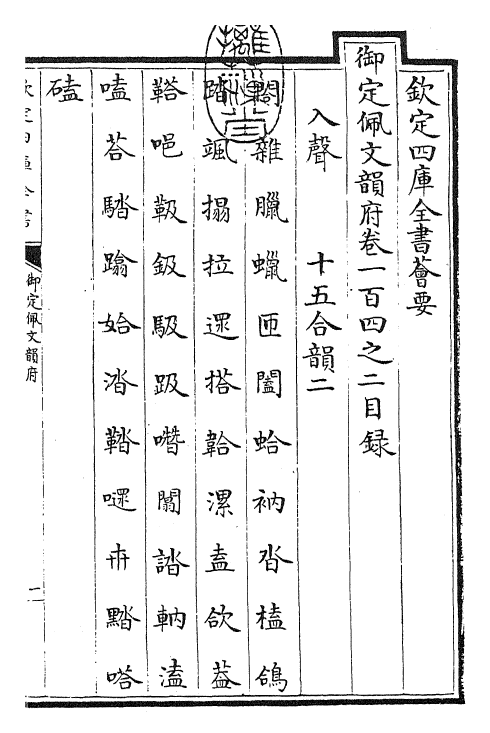 欽定四庫全書薈要
御定佩文韻府卷一百四之二目録
入聲 十五合韻二
閤雜臘蠟匝闔蛤衲沓榼鴿
踏颯搨拉遝搭韐漯盍欱葢
鞳唈靸鈒馺趿噆闒誻軜溘
嗑荅騇蹹姶涾鞜嚃卅黮嗒
磕
御定佩文韻府
一